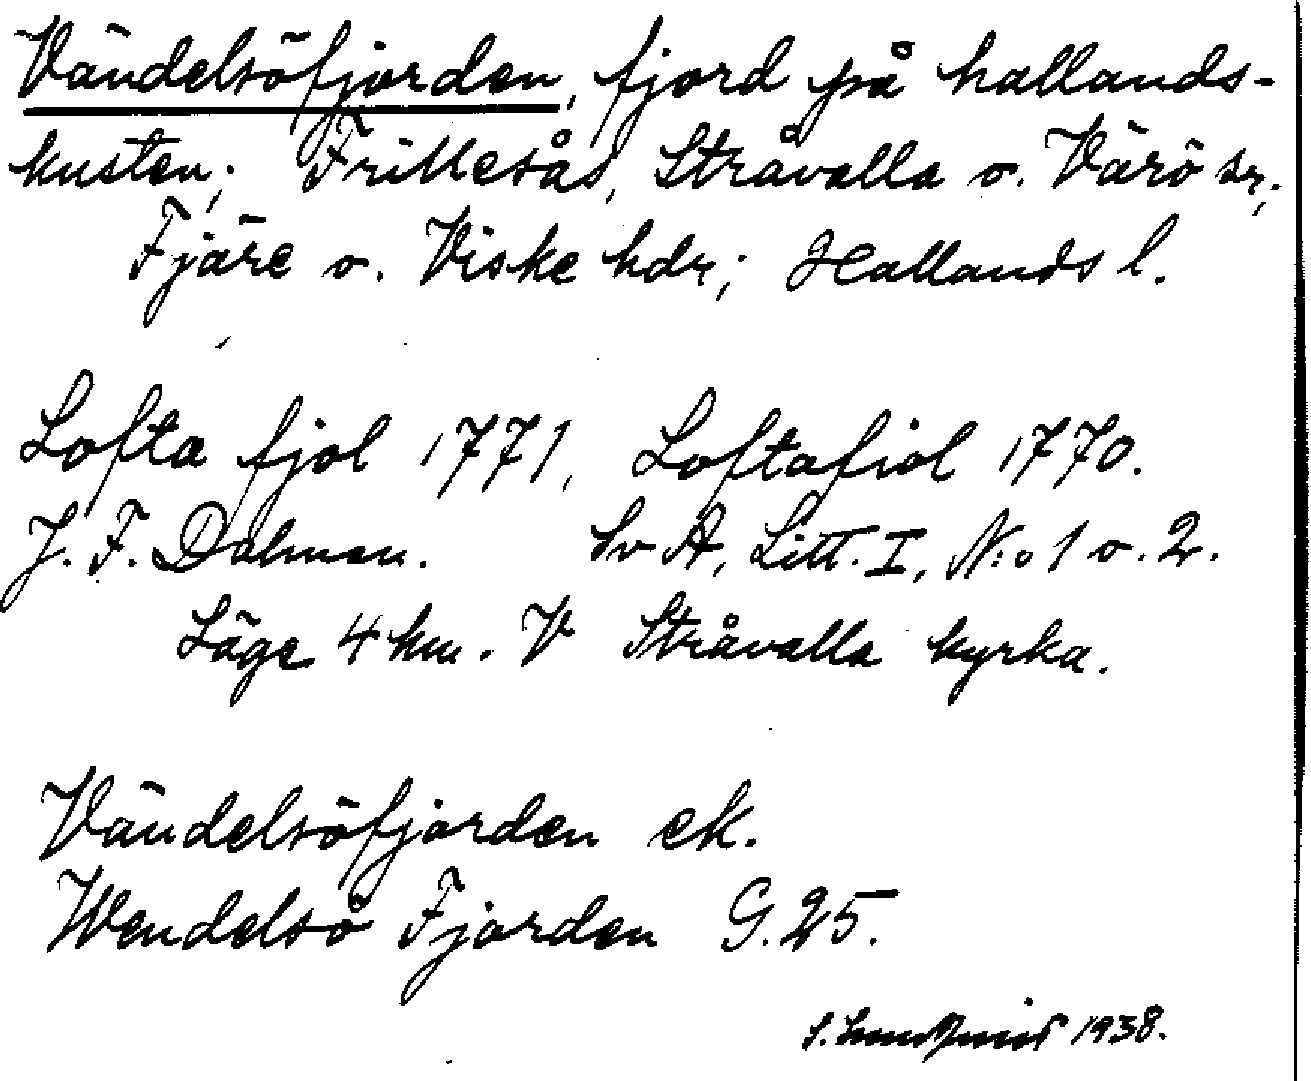 Vändelsöfjorden, fjord på hallands-
kusten; Frillesås, Stråvalla o. Värö snr,
Fjäre o. Viske hdr; Hallands l.
Lofta fjol 1771, Loftafiol 1770.
J. F. Dalman. Sv A, Litt. I, N:o 1 o. 2.
Läge 4 km. V Stråvalla kyrka.
Vändelsöfjorden ek.
Wendelsö Fjorden G. 25.
S. Lundquist 1938.